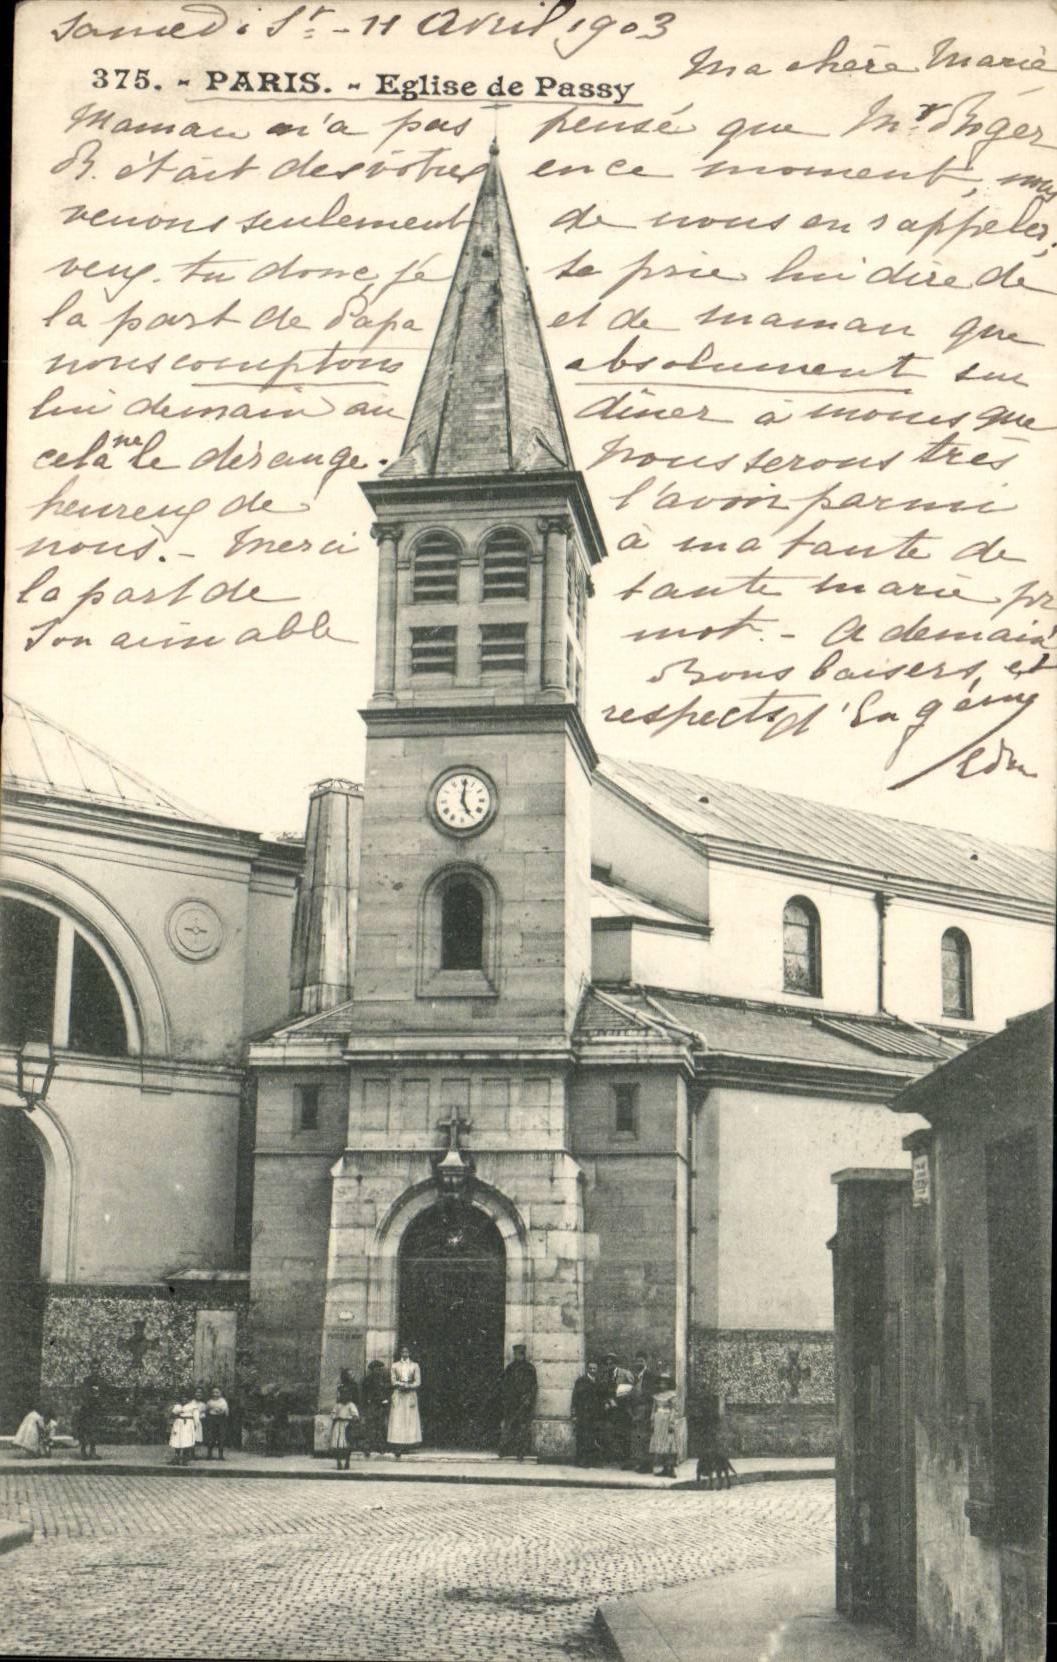 Samedi St - 11 Avril 1903
Ma chère Marie
375. - PARIS. - Eglise de Passy
Maman n'a pas pensé que Mr Roger
R. était des vôtres en ce moment, nous
venons seulement de nous en rappeler,
veux-tu donc, je te prie lui dire de
la part de Papa et de maman que
nous comptons absolument sur
lui demain au dîner à moins que
cela ne le dérange. Nous serons très
heureux de l'avoir parmi
nous. - Merci à ma tante de
la part de tante marie pr
son aimable mot. - A demain
Bons baisers, et
respects d'